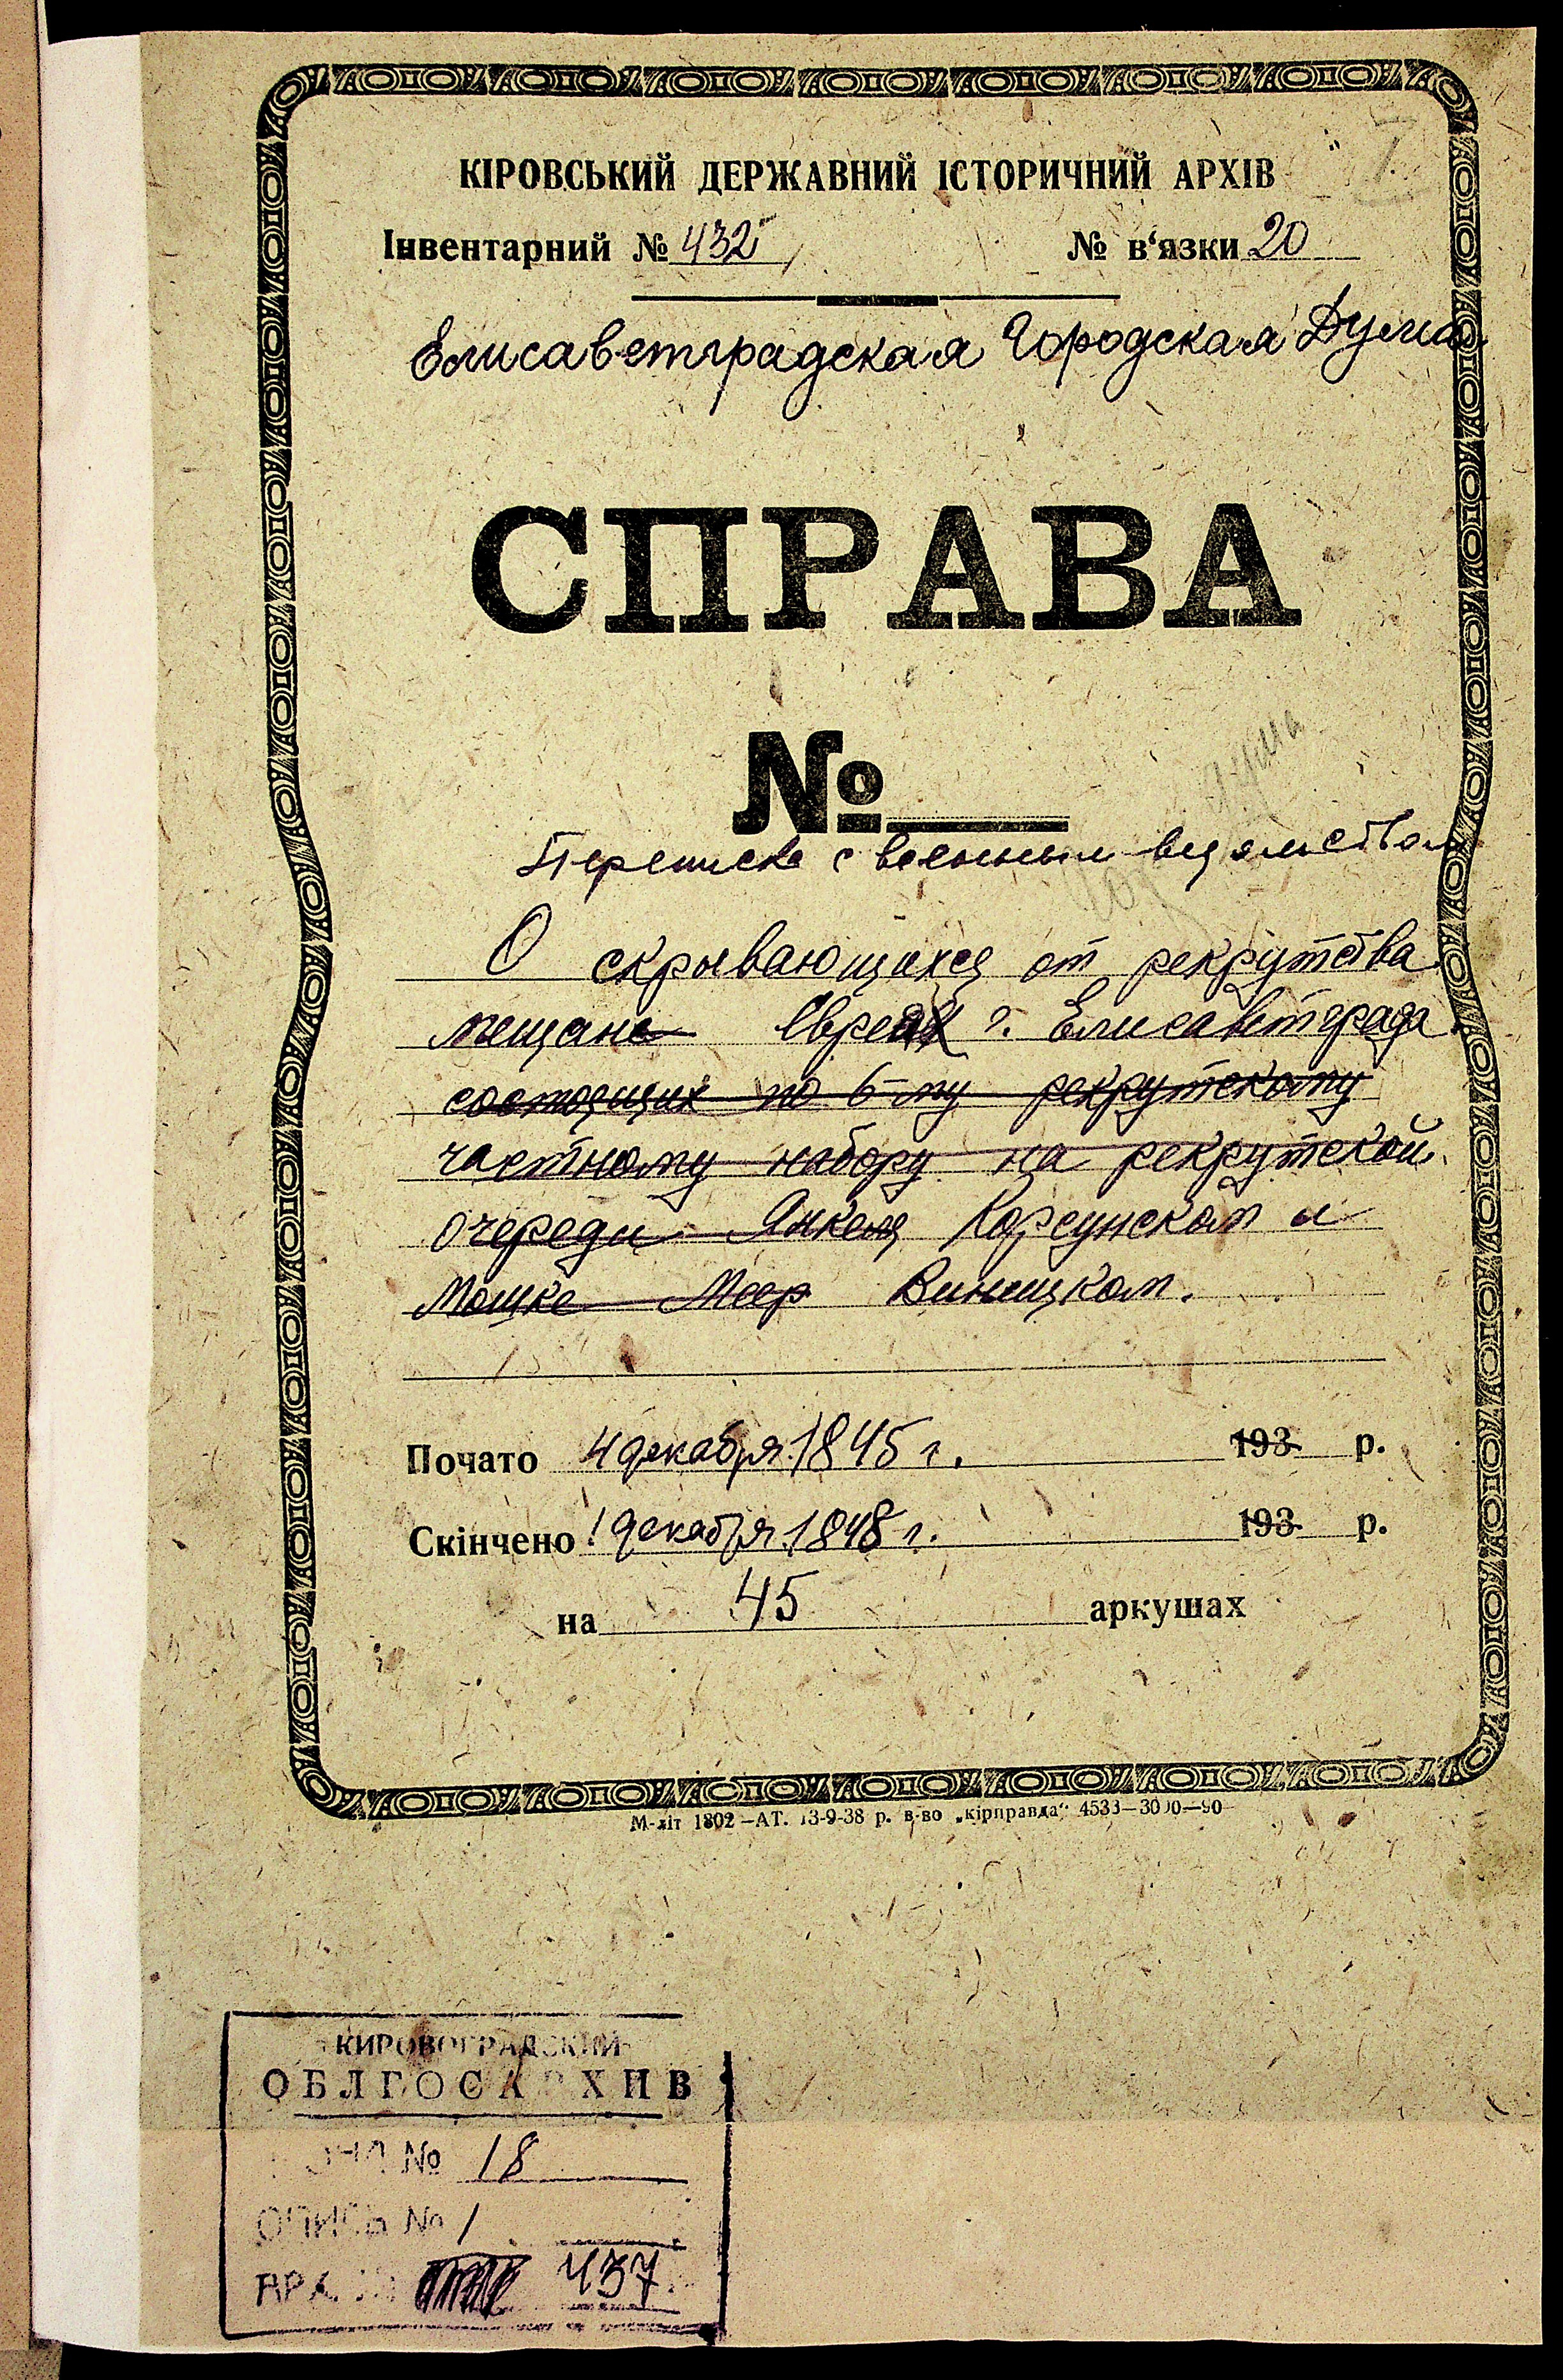 КІРОВСЬКИЙ ДЕРЖАВНИЙ ІСТОРИЧНИЙ АРХІВ
Інвентарний № 432 № в'язки 20
Елисаветградская Городская Дума
СПРАВА
№
Переписка с военным ведомством
О скрывающихся от рекрутства
мещане Евреях г. Елисаветграда
состоящих по 6-му рекрутскому
частному набору на рекрутской
очереди Янкеля Корсунском и
Мошке Меер Виницком.
Почато 4 декабря 1845 г. 193 р.
Скінчено 1 декабря 1848 г. 193 р.
на 45 аркушах
М-літ 1802—АТ. 13-9-38 р. в-во „кірправда" 4533—3000—90
КИРОВОГРАДСКИЙ
ОБЛГОСАРХИВ
ФОНД № 18
ОПИСЬ № 1
437